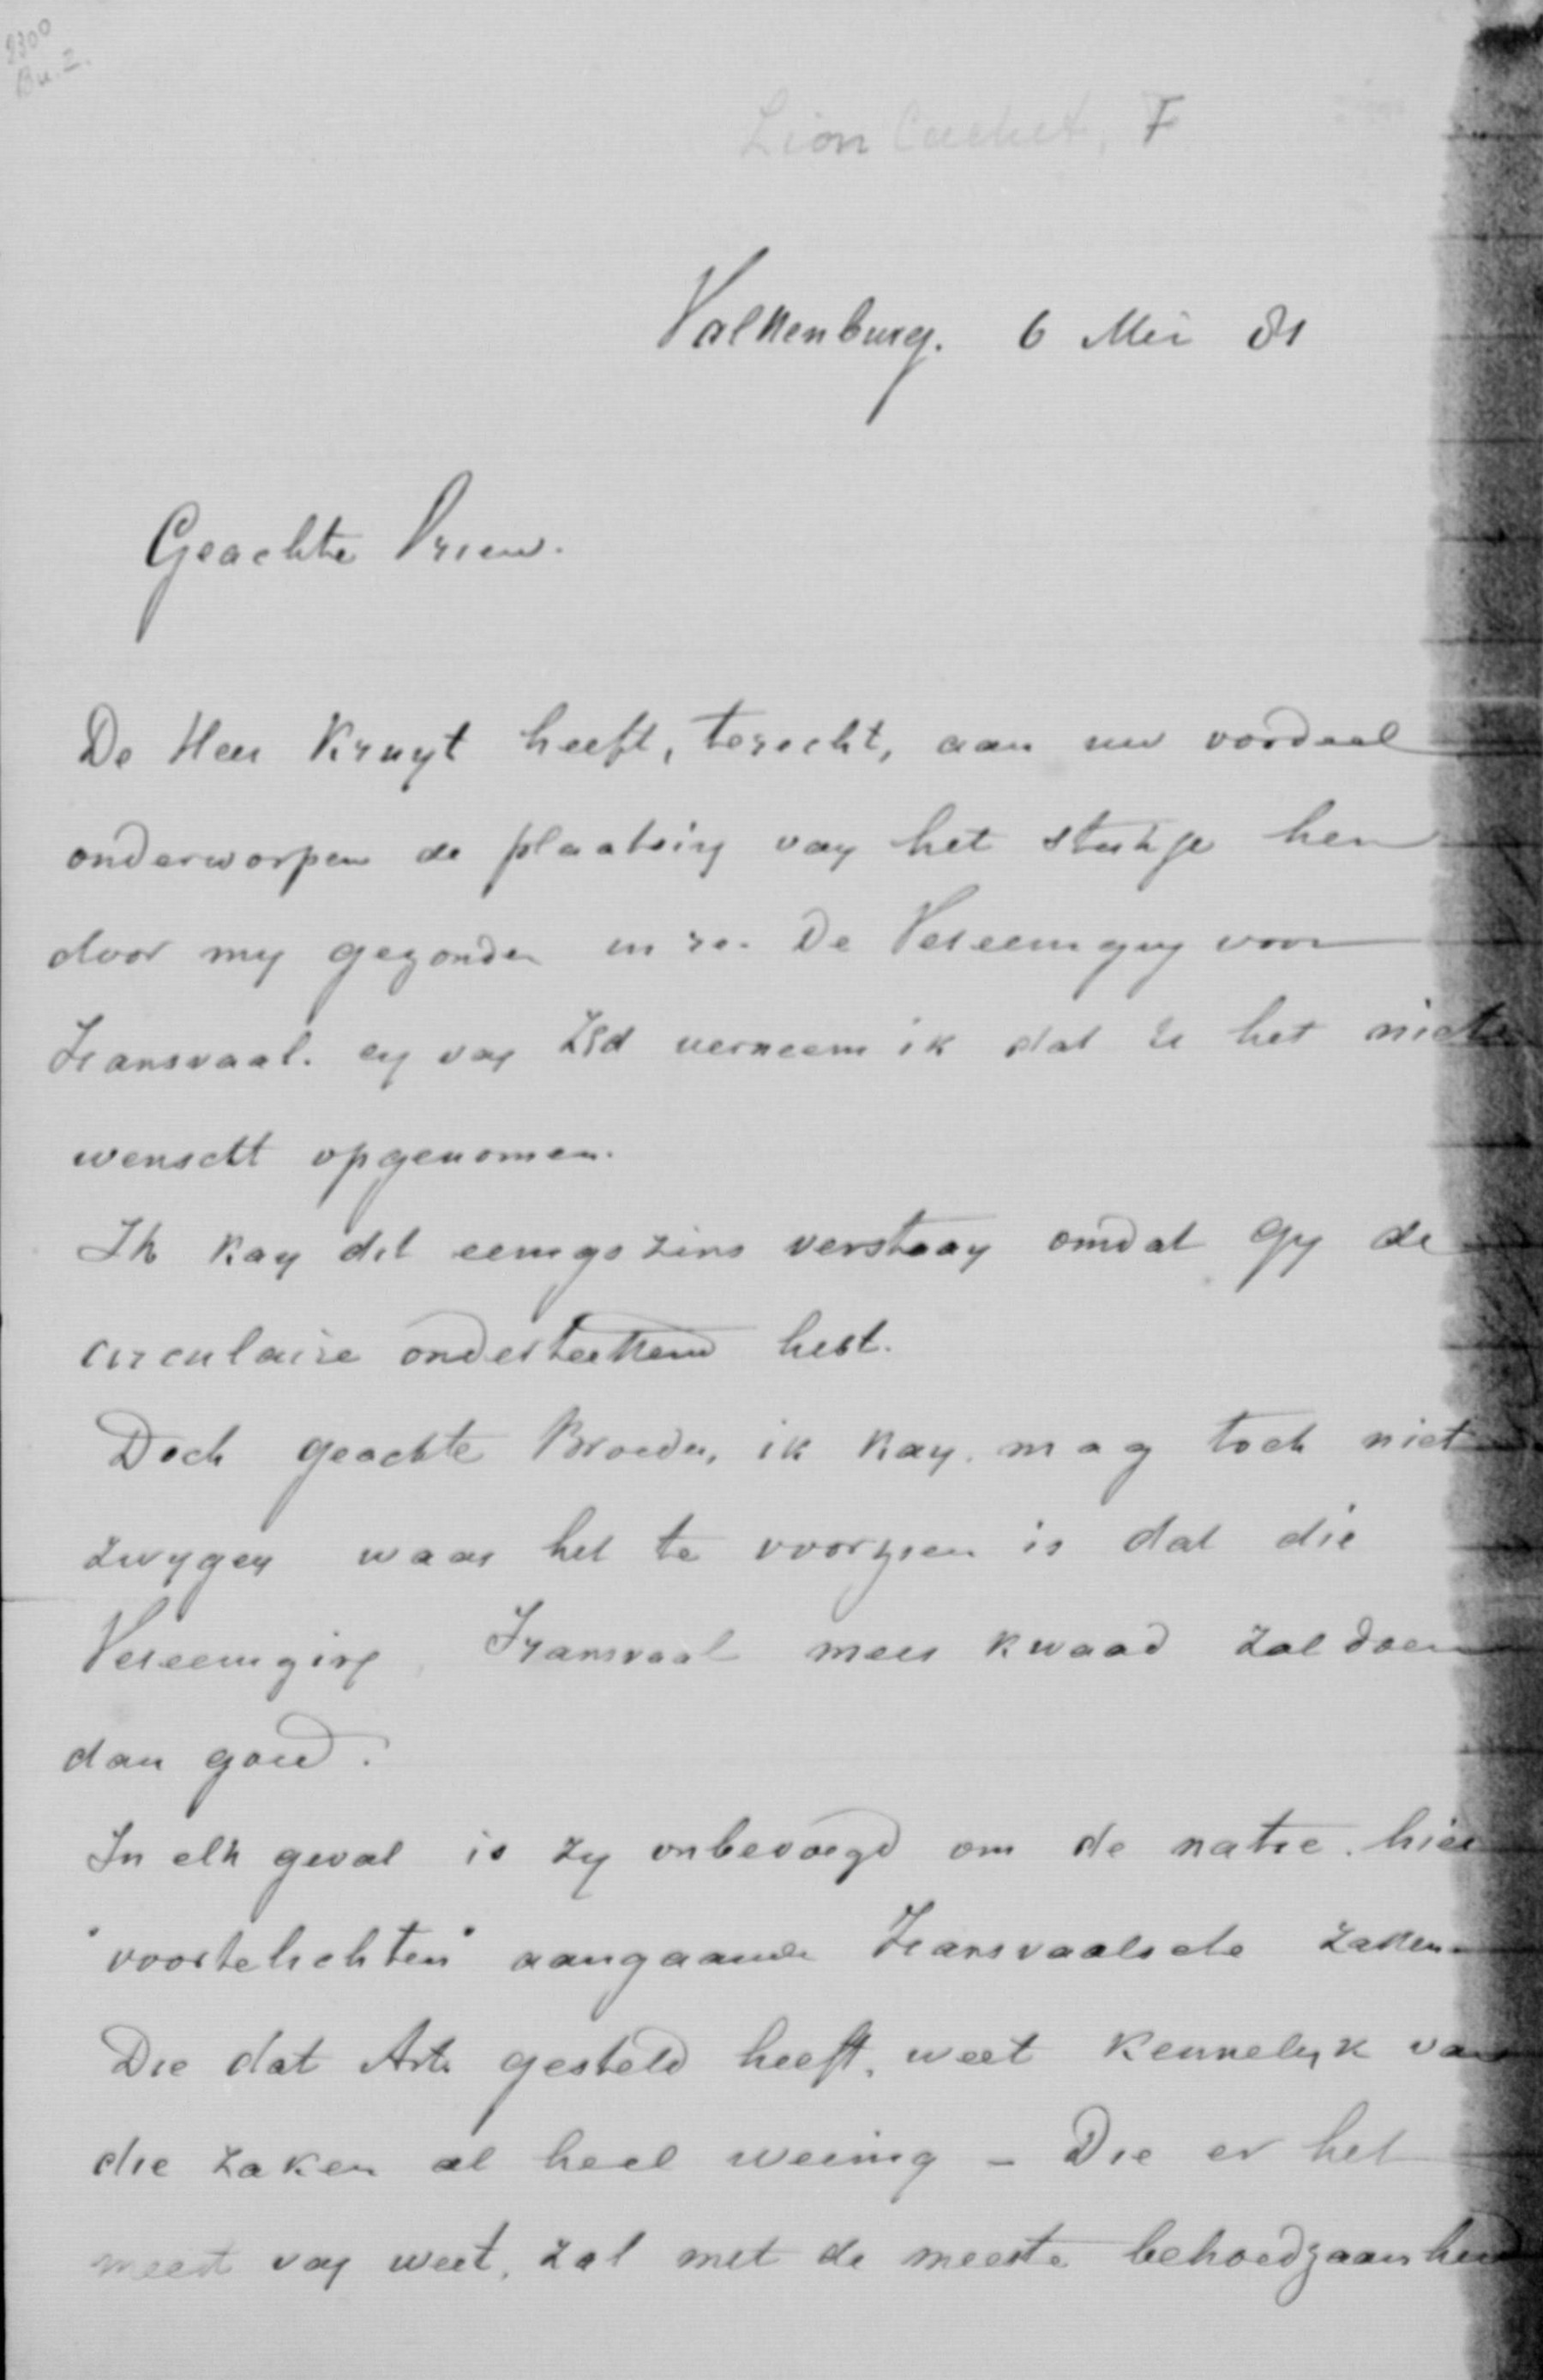 2300
Bu. 2.
Lion Cachet, F
Valkenburg. 6 Mei 81
Geachte Vriend.
De Heer Kruyt heeft, terecht, aan uw oordeel
onderworpen de plaatsing van het stukje hem
door my gezonden in re. De Vereeniging voor
Transvaal. en van ZEd verneem ik dat U het niet
wenscht opgenomen.
Ik kan dit eenigszins verstaan omdat Gy de
circulaire onderteekend hebt.
Doch geachte Broeder, ik kan, mag toch niet
zwygen waar het te voorzien is dat die
Vereeniging, Transvaal meer kwaad zal doen
dan goed.
In elk geval is zy onbevoegd om de natie hier
"voortelichten" aangaande Transvaalsche zaken.
Die dat Art. gesteld heeft, weet kennelyk van
die zaken al heel weinig - Die er het
meest van weet, zal met de meeste behoedzaamheid